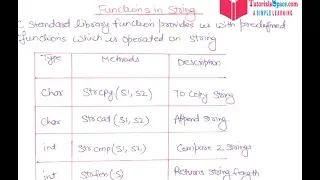 TutorialsSpace.com
A SIMPLE LEARNING
Functions in String
C standard library function provides us with predefined
functions which is operated on String
Type Methods Description
Char Strcpy (S1, S2) To Copy String
Char Strcat (S1, S2) Append string
int Strcmp (S1, S2) Compare 2 Strings
int Strlen (S) Returns string length